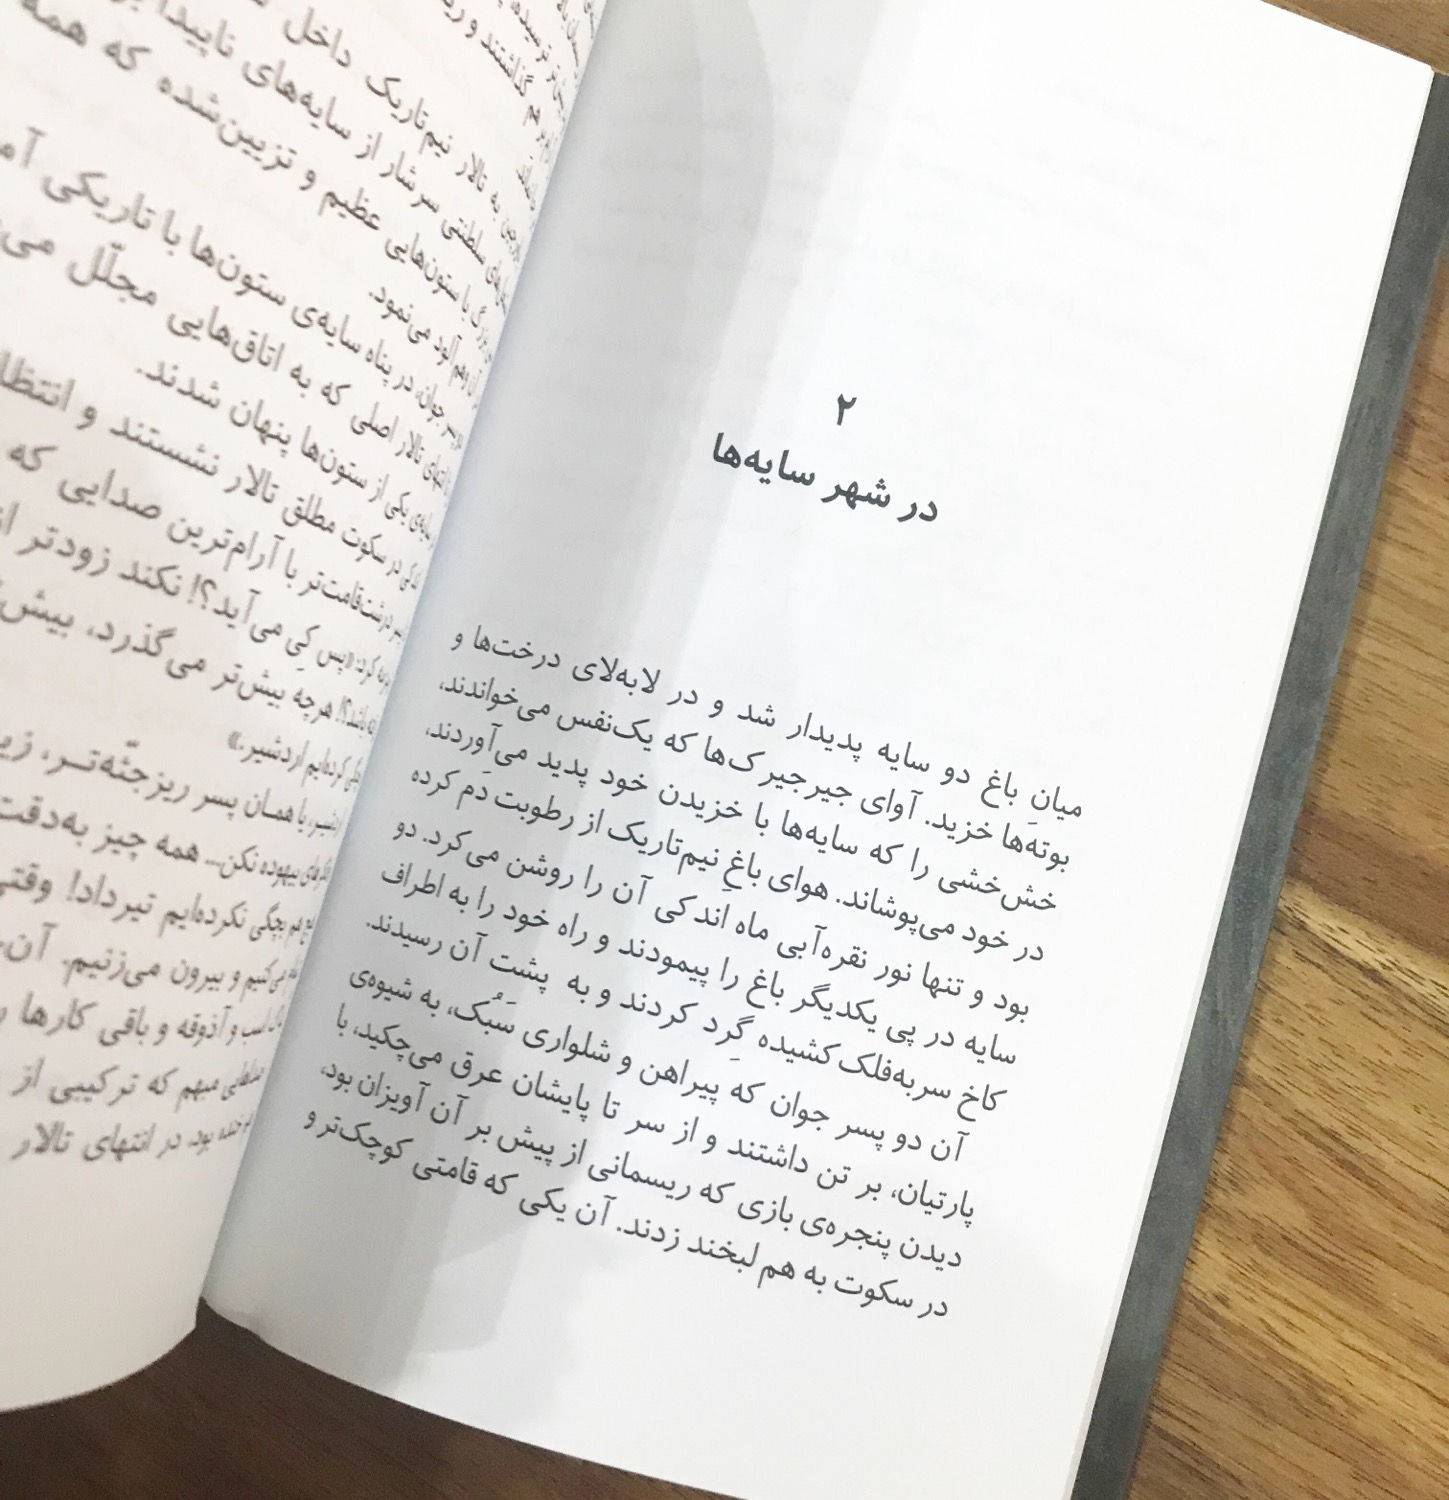 ۲
در شهر سایه‌ها
میانِ باغ دو سایه پدیدار شد و در لابه‌لای درخت‌ها و
بوته‌ها خزید. آوای جیرجیرک‌ها که یک‌نفس می‌خواندند،
خش‌خشی را که سایه‌ها با خزیدن خود پدید می‌آوردند،
در خود می‌پوشاند. هوای باغِ نیم‌تاریک از رطوبت دَم کرده
بود و تنها نور نقره‌آبی ماه اندکی آن را روشن می‌کرد. دو
سایه در پی یکدیگر باغ را پیمودند و راه خود را به اطراف
کاخ سربه‌فلک‌کشیده گِرد کردند و به پشت آن رسیدند.
آن دو پسر جوان که پیراهن و شلواری سَبُک، به شیوه‌ی
پارتیان، بر تن داشتند و از سر تا پایشان عرق می‌چکید، با
دیدن پنجره‌ی بازی که ریسمانی از پیش بر آن آویزان بود،
در سکوت به هم لبخند زدند. آن یکی که قامتی کوچک‌تر و
برهم گذاشتند و
به تالار نیم‌تاریک داخل
سلطنتی سرشار از سایه‌های ناپیدا
بزرگ با ستون‌هایی عظیم و تزیین‌شده که همه
وهم‌آلود می‌نمود.
پسر جوان، در پناه سایه‌ی ستون‌ها با تاریکی
انتهای تالار اصلی که به اتاق‌هایی مجلّل
سایه‌ی یکی از ستون‌ها پنهان شدند.
اندکی در سکوت مطلق تالار نشستند و
پسر درشت‌قامت‌تر با آرام‌ترین صدایی که
کرد: «پس کِی می‌آید؟! نکند زودتر از
باشد؟! هرچه بیش‌تر می‌گذرد،
کرده‌ایم اردشیر.»
اردشیر، با همان پسر ریزجثّه‌تر،
فکرهای بیهوده نکن... همه چیز به‌دقت
هم بچگی نکرده‌ایم تیرداد! وقتی
می‌کنیم و بیرون می‌زنیم.
اسب و آذوقه و باقی کارها
صداهایی مبهم که ترکیبی از
خنده بود، در انتهای تالار